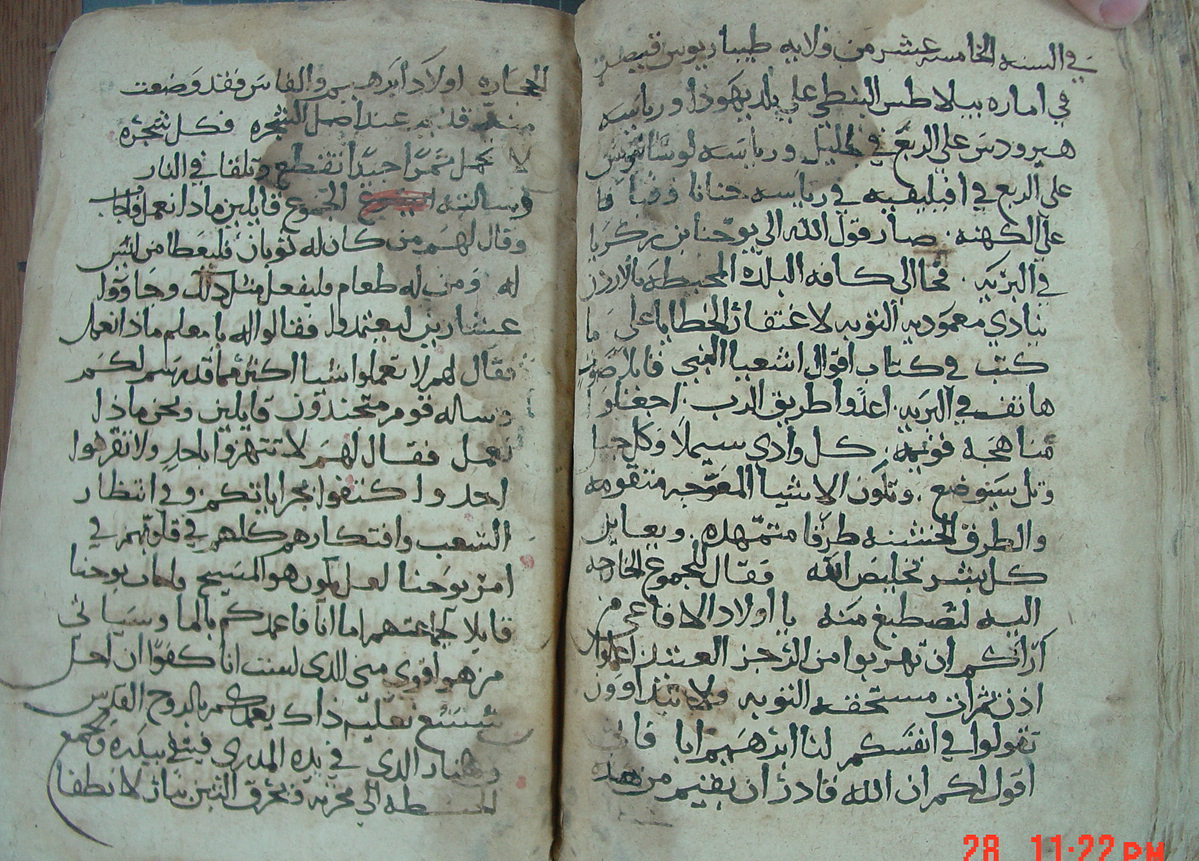 في السنه الخامسه عشر من ولايه طيباريوس قيصر
في اماره بيلاطس البنطي علي بلد يهوذا ورياسه
هيرودس علي الربع في الجليل ورياسه لوسانيوس
علي الربع في افيليقيه في رياسه حنانا وقيافا
علي الكهنه صار قول الله الي يوحنا بن زكريا
في البريه فجا الي كافه البلده المحيطه بالاردن
ينادي معموديه التوبه لاغتفار الخطايا علي ما
كتب في كتاب اقوال اشعيا النبي قايلا صوت
هاتف في البريه اعدوا طريق الرب اجعلوا
مناهجه قويمه كل وادي سيملا وكل جبل
وتل سيتوضع وتكون الاشيا المعوجه متقومه
والطرق الخشنه طرقا متمهده ويعاين
كل بشر تخليص الله فقال للجموع الخارجه
اليه لتصطبغ منه يا اولاد الافاعي من
اراكم ان تهربوا من الرجز العتيد اعملوا
اذن ثمرات مستحقه التوبه ولا تبتداوون
تقولوا في انفسكم لنا ابرهيم ابا فاني
اقول لكم ان الله قادر ان يقيم من هذه
الحجاره اولاد ابرهيم والفاس فقد وضعت
منذ قديم عند اصل الشجره فكل شجره
لا تحمل ثمرا جيدا تنقطع وتلقا في النار
وسالته الجموع قايلين ماذا نعمل فاجاب
وقال لهم من كان له ثوبان فليعطا من ليس
له ومن له طعام فليفعل مثل ذلك وجاووا
عشارين ليعتمدوا فقالوا له يا معلم ماذا نعمل
فقال لهم لا تعملوا شيا اكثر مما قد رسم لكم
وساله قوم متجندون قايلين ونحن ماذا
نعمل فقال لهم لا تنتهزوا باحد ولا تقرهوا
احد واكتفوا بجراياتكم وفي انتظار
الشعب وافتكارهم كلهم في قلوبهم في
امر يوحنا لعل يكون هو المسيح واجاب يوحنا
قايلا لجماعتهم اما انا فاعمدكم بالما وسياتي
من هو اقوي مني الذي لست انا كفوا ان احل
شسع نعليه ذاك يعمدكم بالروح القدس
والنار الذي في يده المدري فينقي بيدره ويجمع
الحنطه الي مخزنه ويحرق التبن بنار لا تطفا
28 11:22 PM